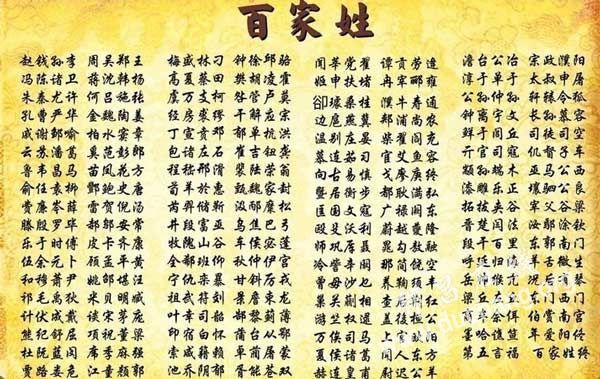 百家姓
赵钱孙李 周吴郑王
冯陈褚卫 蒋沈韩杨
朱秦尤许 何吕施张
孔曹严华 金魏陶姜
戚谢邹喻 柏水窦章
云苏潘葛 奚范彭郎
鲁韦昌马 苗凤花方
俞任袁柳 酆鲍史唐
费廉岑薛 雷贺倪汤
滕殷罗毕 郝邬安常
乐于时傅 皮卞齐康
伍余元卜 顾孟平黄
和穆萧尹 姚邵湛汪
祁毛禹狄 米贝明臧
计伏成戴 谈宋茅庞
熊纪舒屈 项祝董梁
杜阮蓝闵 席季麻强
贾路娄危 江童颜郭
梅盛林刁 钟徐邱骆
高夏蔡田 樊胡凌霍
虞万支柯 昝管卢莫
经房裘缪 干解应宗
丁宣贲邓 郁单杭洪
包诸左石 崔吉钮龚
程嵇邢滑 裴陆荣翁
荀羊於惠 甄曲家封
芮羿储靳 汲邴糜松
井段富巫 乌焦巴弓
牧隗山谷 车侯宓蓬
全郗班仰 秋仲伊宫
宁仇栾暴 甘钭厉戎
祖武符刘 景詹束龙
叶幸司韶 郜黎蓟薄
印宿白怀 蒲邰从鄂
索咸籍赖 卓蔺屠蒙
池乔阴郁 胥能苍双
闻莘党翟 谭贡劳逄
姬申扶堵 冉宰郦雍
郤璩桑桂 濮牛寿通
边扈燕冀 郏浦尚农
温别庄晏 柴瞿阎充
慕连茹习 宦艾鱼容
向古易慎 戈廖庾终
暨居衡步 都耿满弘
匡国文寇 广禄阙东
欧殳沃利 蔚越夔隆
师巩厍聂 晁勾敖融
冷訾辛阚 那简饶空
曾毋沙乜 养鞠须丰
巢关蒯相 查后荆红
游竺权逯 盖益桓公
万俟司马 上官欧阳
夏侯诸葛 闻人东方
赫连皇甫 尉迟公羊
澹台公冶 宗政濮阳
淳于单于 太叔申屠
公孙仲孙 轩辕令狐
钟离宇文 长孙慕容
鲜于闾丘 司徒司空
亓官司寇 仉督子车
颛孙端木 巫马公西
漆雕乐正 壤驷公良
拓跋夹谷 宰父谷梁
晋楚闫法 汝鄢涂钦
段干百里 东郭南门
呼延归海 羊舌微生
岳帅缑亢 况后有琴
梁丘左丘 东门西门
商牟佘佴 伯赏南宫
墨哈谯笪 年爱阳佟
第五言福 百家姓终